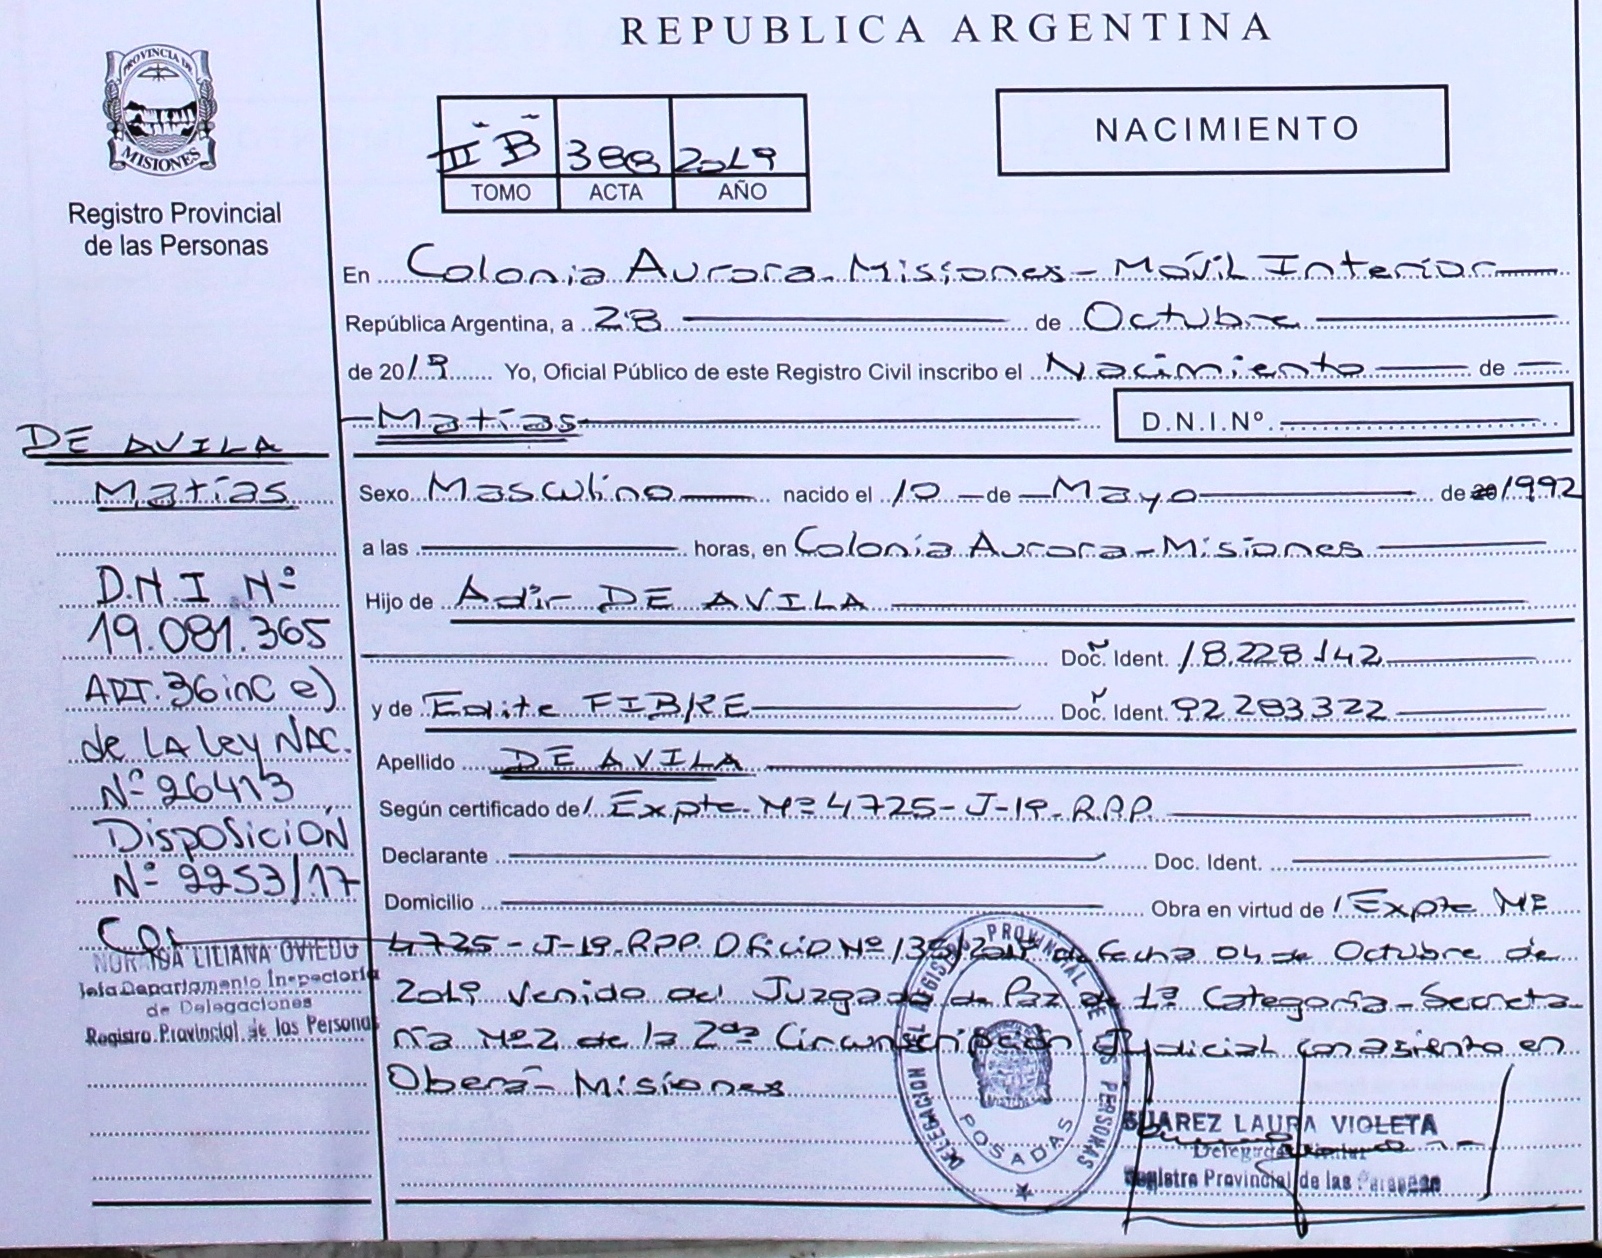 REPUBLICA ARGENTINA
PROVINCIA DE
MISIONES
Registro Provincial
de las Personas
III "B" 388 2019
TOMO ACTA AÑO
NACIMIENTO
En Colonia Aurora - Misiones - Móvil Interior
República Argentina, a 28 de Octubre
de 2019 Yo, Oficial Público de este Registro Civil inscribo el Nacimiento de
Matías
D.N.I.Nº
DE AVILA
Matías
D.N.I Nº
19.081.365
ART. 36 inc e)
de LA Ley NAC.
Nº 26413
Disposición
Nº 2253/17
Sexo Masculino nacido el 10 de Mayo de 20 1992
a las horas, en Colonia Aurora - Misiones
Hijo de Adir DE AVILA
Doc. Ident. 18.228.142
y de Edite FIBRE Doc. Ident. 92.283.322
Apellido DE AVILA
Según certificado de Expte. Nº 4725 - J-19. R.P.P.
Declarante Doc. Ident.
Domicilio Obra en virtud de Expte Nº
4725 - J-19. RPP. Oficio Nº de fecha 04 de Octubre de
2019 venido del Juzgado de Paz de 1ª Categoría - Secreta-
ría Nº 2 de la 2da Circunscripción Judicial con asiento en
Oberá - Misiones
LILIANA OVIEDO
Jefa Departamento Inspectoria
de Delegaciones
Registro Provincial de las Personas
DELEGACION REGISTRO PROVINCIAL DE LAS PERSONAS
POSADAS
SUAREZ LAURA VIOLETA
Registro Provincial de las Personas